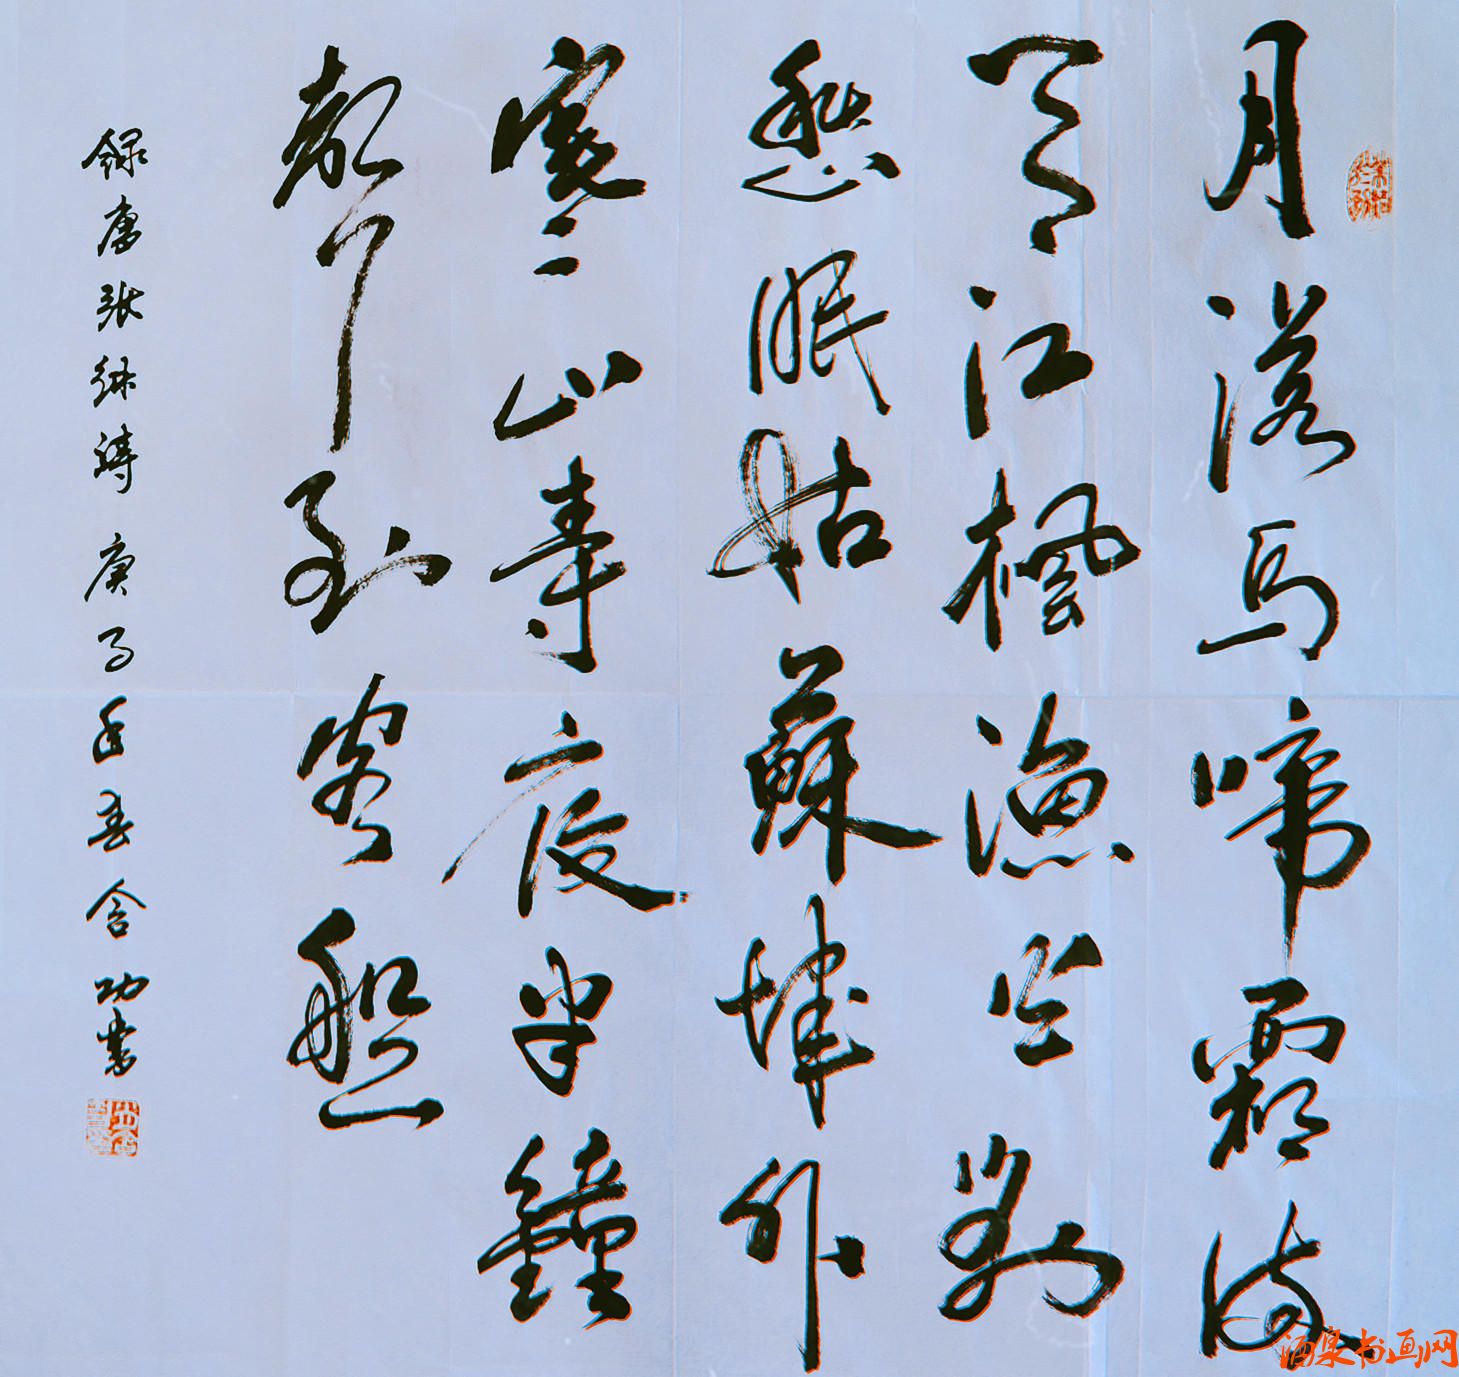 月落烏啼霜滿
天江楓漁火對
愁眠姑蘇城外
寒山寺夜半鐘
聲到客船
錄唐張继詩 庚子年春含功書
酒泉书画网